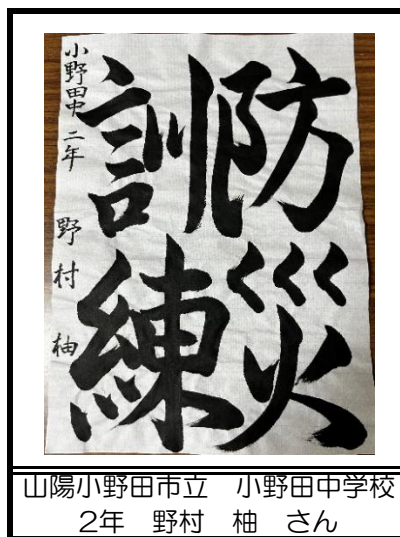 防災
訓練
小野田中 二年 野村 柚
山陽小野田市立　小野田中学校
2年　野村　柚　さん